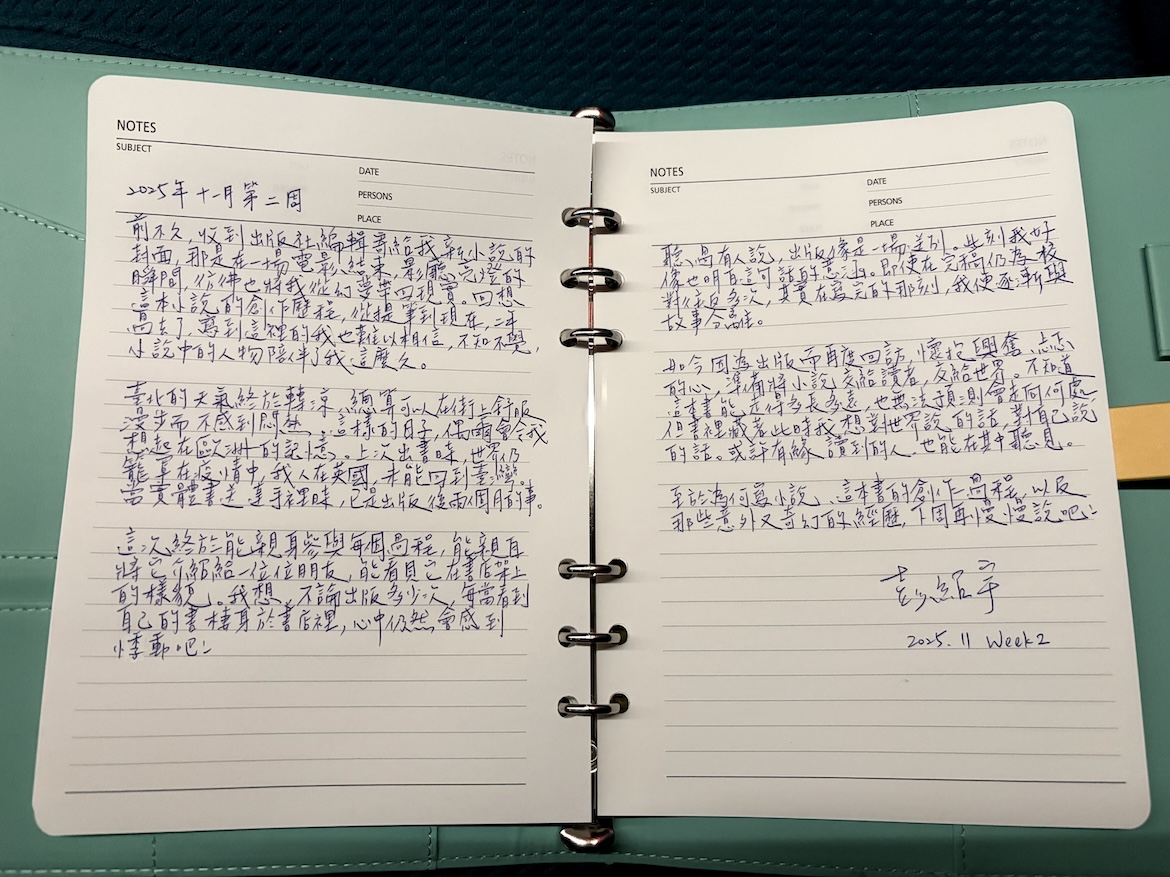 NOTES
SUBJECT
DATE
PERSONS
PLACE
2025年十一月第二周
前不久,收到出版社編輯寄給我新小說的
封面,那是在一場電影結束,影廳亮燈的
瞬間,彷彿也將我從幻夢帶回現實。回想
這本小說的創作歷程,從提筆到現在,二年
過去了,寫到這裡的我也難以相信,不知不覺,
小說中的人物陪伴了我這麼久。
臺北的天氣終於轉涼,總算可以在街上舒服
漫步而不感到悶熱。這樣的日子,偶爾會令我
想起在歐洲的記憶。上次出書時,世界仍
籠罩在疫情中,我人在英國,未能回到臺灣。
當實體書送達手裡時,已是出版後兩個月的事。
這次終於能親身參與每個過程,能親自
將它介紹給一位位朋友,能看見它在書店架上
的樣貌。我想,不論出版多少次,每當看到
自己的書棲身於書店裡,心中仍然會感到
悸動吧!
NOTES
SUBJECT
DATE
PERSONS
PLACE
聽過有人說,出版像是一場道別。此刻我好
像也明白這句話的意涵。即使在完稿仍為校
對往返多次,其實在寫完的那刻,我便逐漸與
故事分離。
如今因為出版而再度回訪,懷抱興奮、忐忑
的心,準備將小說交給讀者,交給世界。不知道
這本書能走得多長多遠,也無法預測會走向何處,
但書裡藏著此時我想對世界說的話,對自己說
的話。或許有緣讀到的人,也能在其中聽見。
至於為何寫小說、這本書的創作過程,以及
那些意外又奇幻的經歷,下周再慢慢說吧!
紹宇
2025.11 Week2